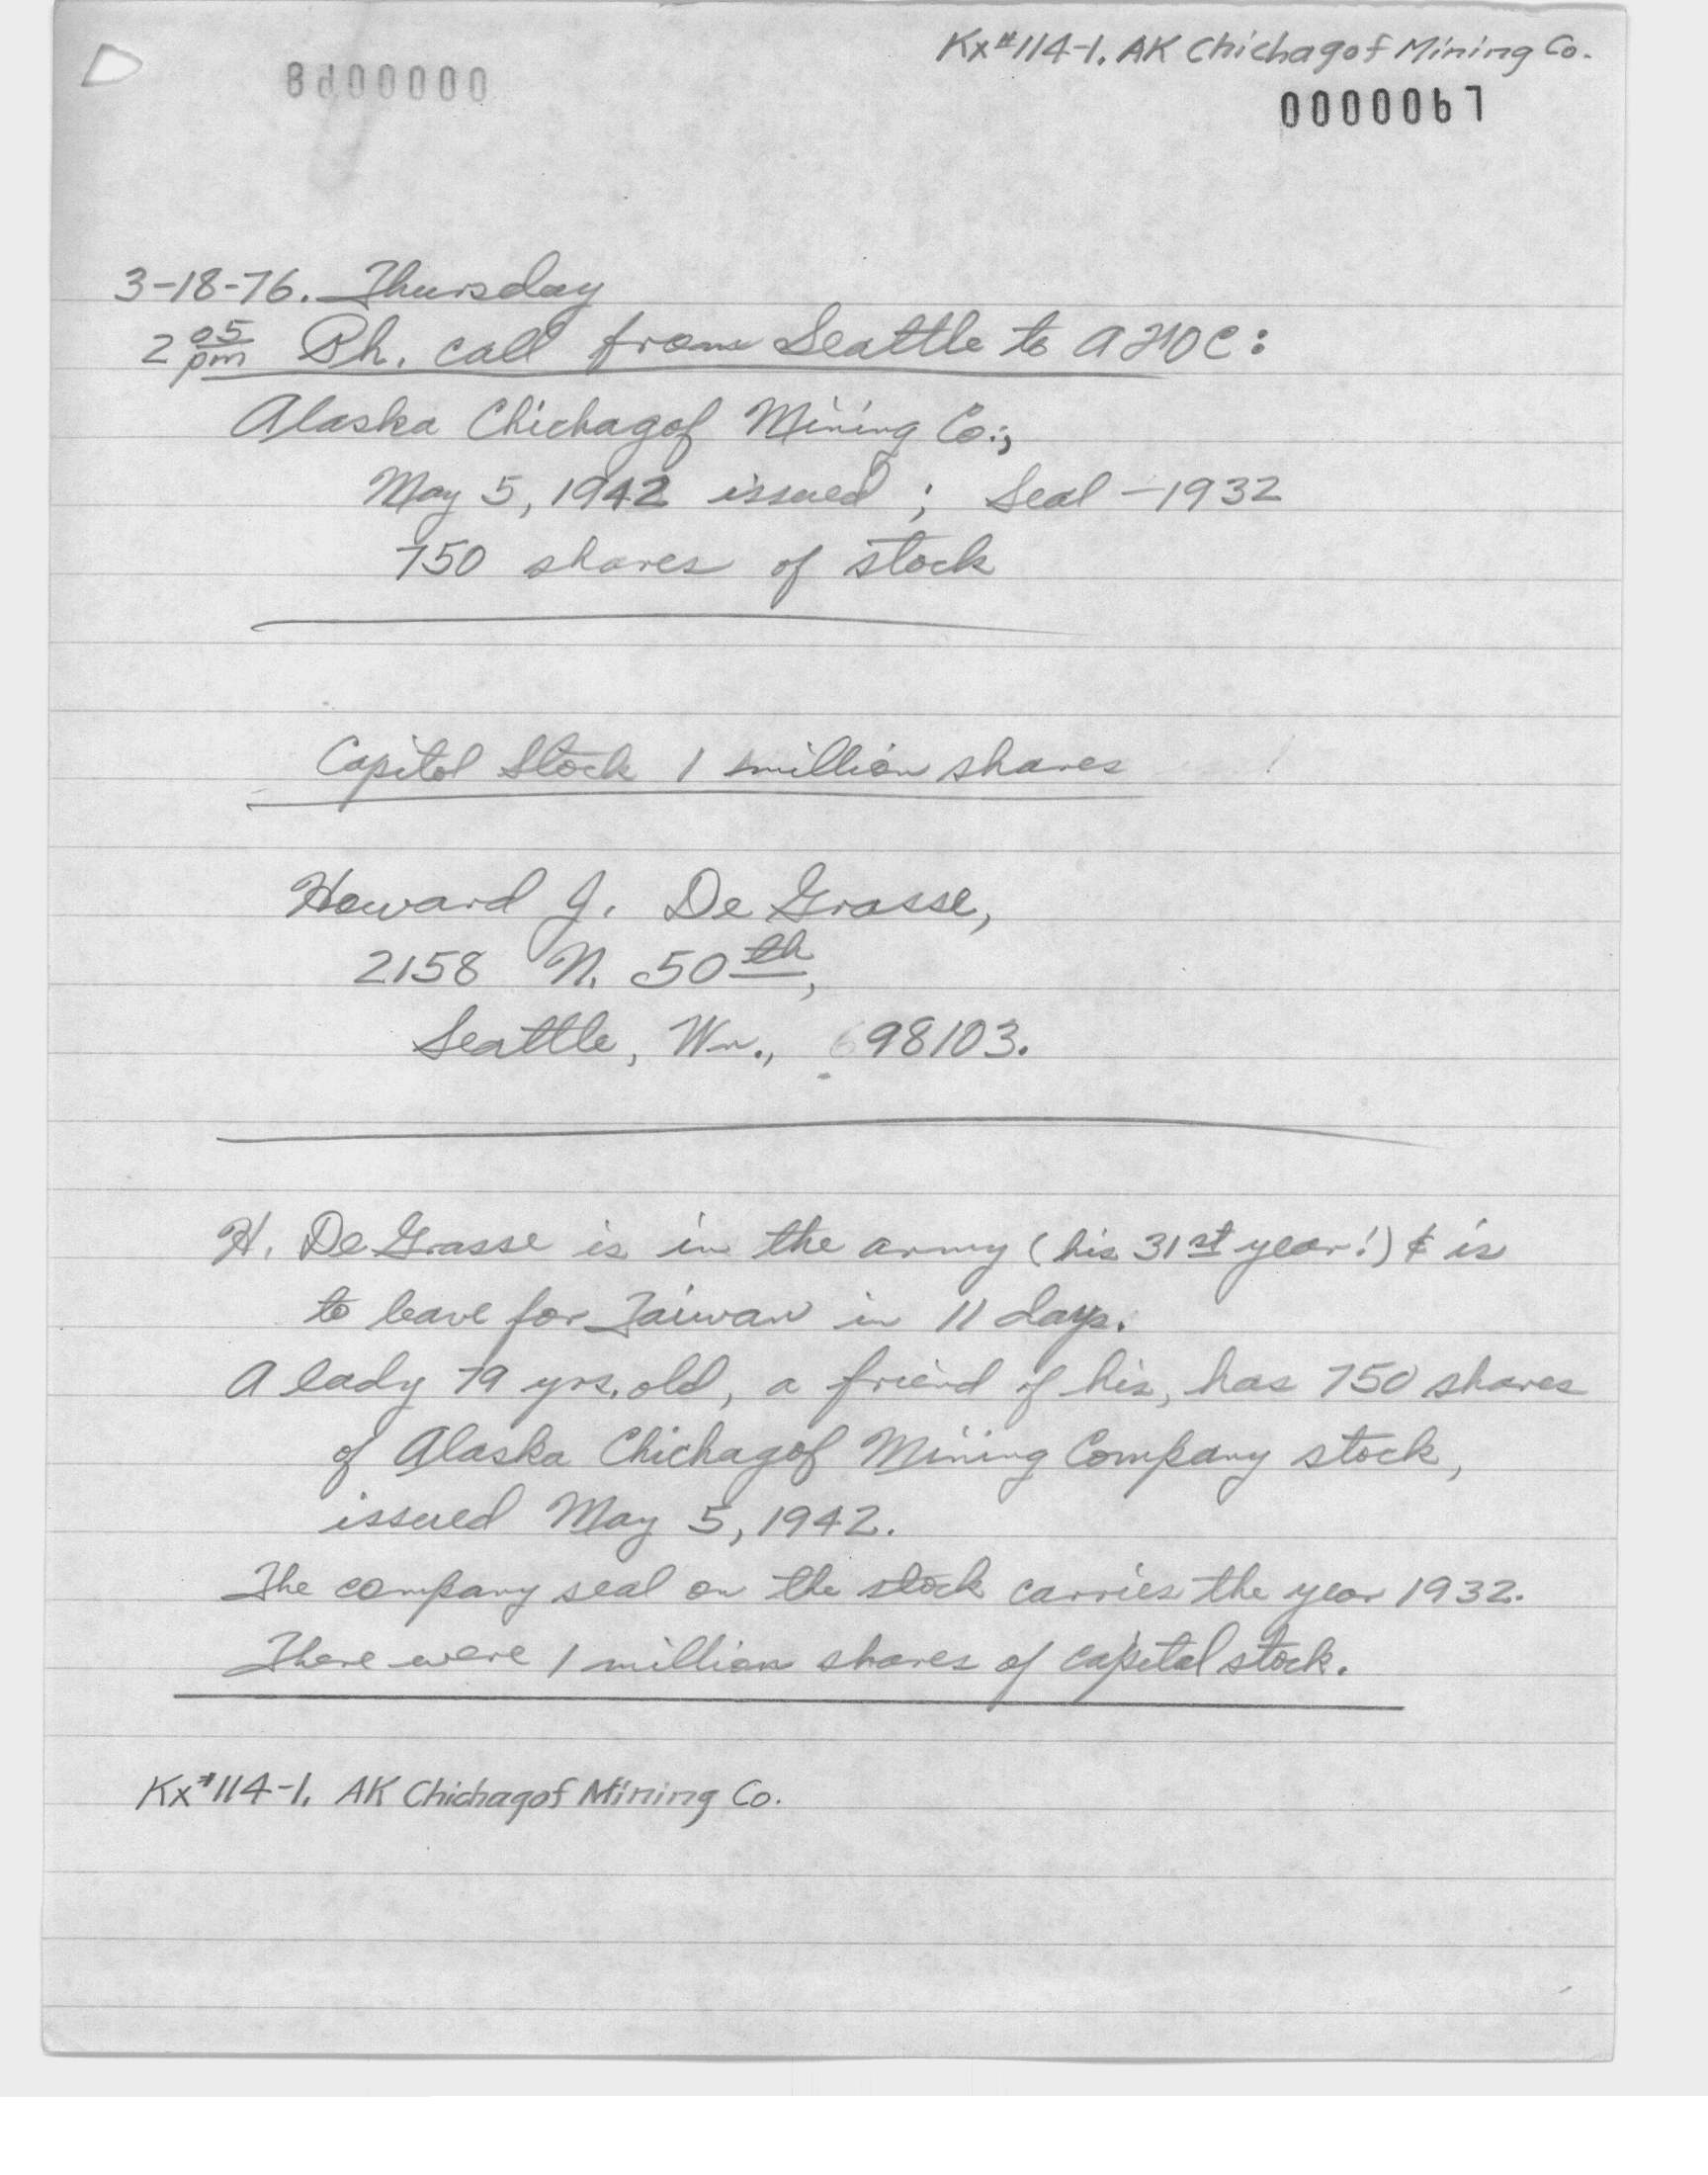 Kx#114-1. AK Chichagof Mining Co.
0000067
3-18-76. Thursday
2 05 pm Ph. call from Seattle to
Alaska Chichagof Mining Co.,
May 5, 1942 issued ; Seal - 1932
750 shares of stock
Capitol Stock 1 million shares
Howard J. De Grasse,
2158 N. 50th,
Seattle, Wn., 98103.
H. De Grasse is in the army (his 31st year!) & is
to leave for Taiwan in 11 days.
A lady 79 yrs. old, a friend of his, has 750 shares
of Alaska Chichagof Mining Company stock,
issued May 5, 1942.
The company seal on the stock carries the year 1932.
There were 1 million shares of capital stock.
Kx#114-1. AK Chichagof Mining Co.